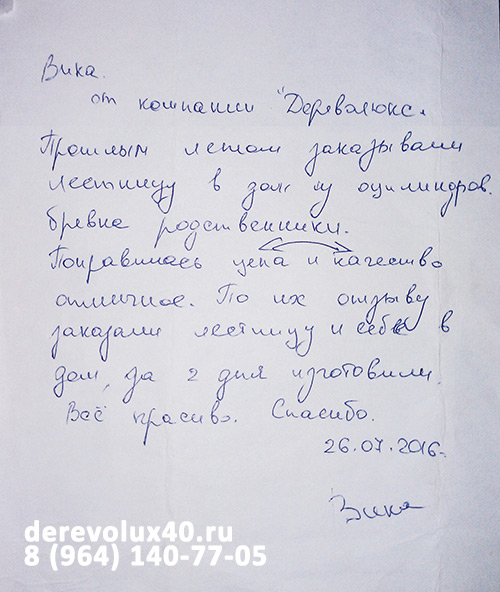 Вика.
от компании "Дереволюкс.
Прошлым летом заказывали
лестницу в дом из оцилиндров.
бревна родственники.
Понравилась цена и качество
отличное. По их отзыву
заказали лестницу и себе в
дом, за 2 дня изготовили.
Всё красиво. Спасибо.
26.07.2016г.
Вика
derevolux40.ru
8 (964) 140-77-05